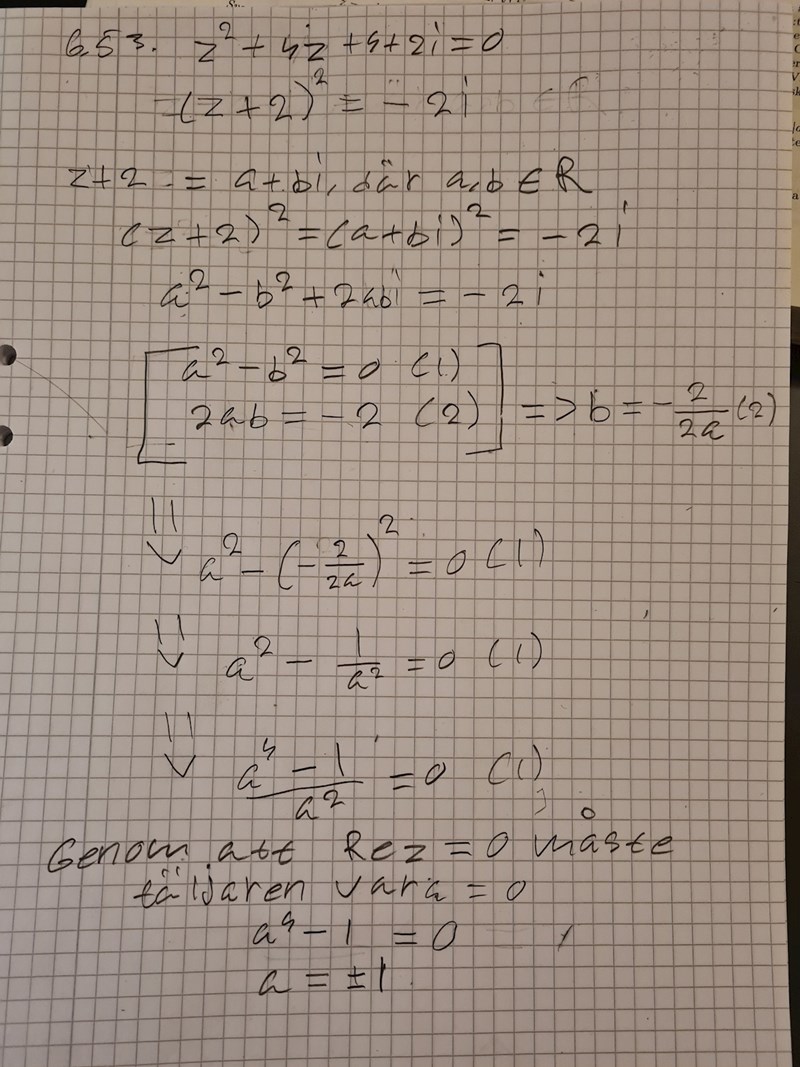 653. z² + 4z + 4 + 2i = 0
(z + 2)² = - 2i
z+2 = a+bi, där a,b ∈ R
(z+2)² = (a+bi)² = - 2i
a² - b² + 2abi = - 2i
a² - b² = 0 (1)
2ab = - 2 (2) => b = - 2/2a (2)
⇓ a² - (- 2/2a)² = 0 (1)
⇓ a² - 1/a² = 0 (1)
⇓ (a⁴ - 1)/a² = 0 (1)
Genom att Re z = 0 måste
täljaren vara = 0
a⁴ - 1 = 0
a = ±1